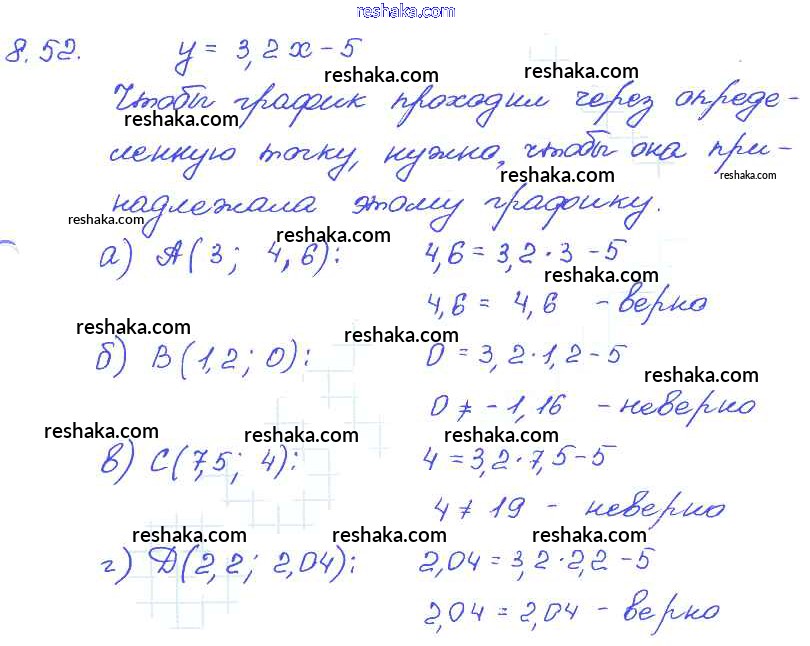 reshaka.com
8.52. y = 3,2x - 5
reshaka.com reshaka.com
Чтобы график проходил через опреде-
reshaka.com reshaka.com
ленную точку, нужно, чтобы она при-
reshaka.com reshaka.com
надлежала этому графику.
reshaka.com reshaka.com
а) A(3; 4,6): 4,6 = 3,2·3 - 5
reshaka.com
4,6 = 4,6 - верно
reshaka.com reshaka.com
б) B(1,2; 0): 0 = 3,2·1,2 - 5
reshaka.com
0 ≠ -1,16 - неверно
reshaka.com reshaka.com reshaka.com
в) C(7,5; 4): 4 = 3,2·7,5 - 5
4 ≠ 19 - неверно
reshaka.com reshaka.com reshaka.com
г) D(2,2; 2,04): 2,04 = 3,2·2,2 - 5
2,04 = 2,04 - верно